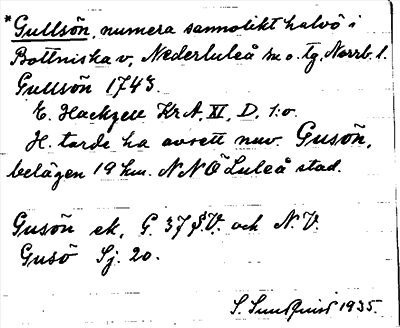 * Gullsön, numera sannolikt halvö i
Bottniska v, Nederluleå sn o. tg. Norrb. l.
Gullsön 1743.
E. Hackzell KrA XI, D, 1:o
H. torde ha avsett nuv. Gusön,
belägen 19 km. NNÖ Luleå stad.
Gusön ek. G. 37 S.V. och N.V.
Gusö Sj. 20.
S. Sundquist 1935.